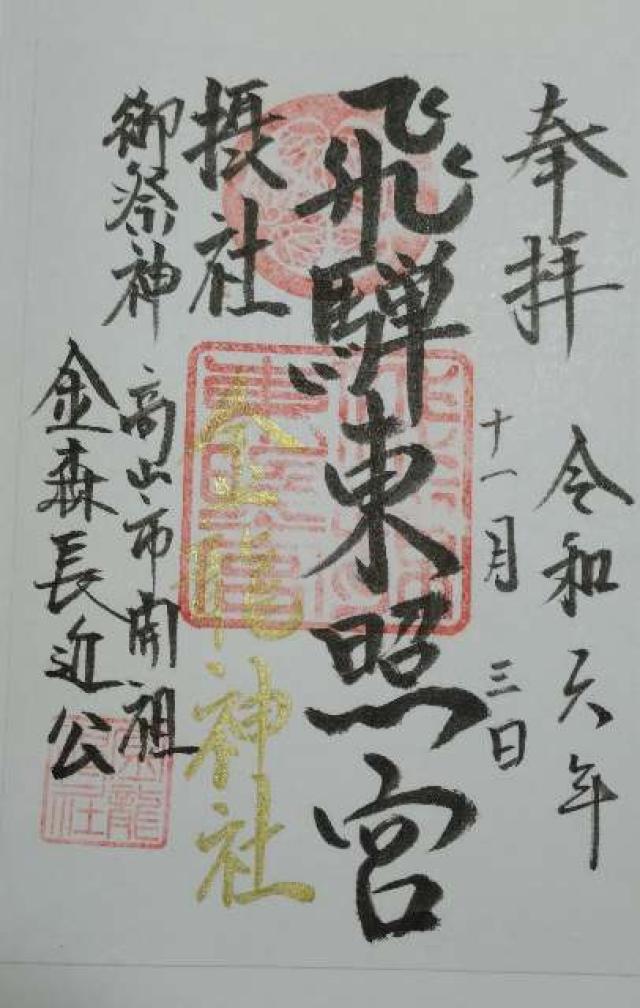 奉拝
令和六年
十一月三日
飛騨東照宮
摂社
金龍神社
御祭神
高山市開祖
金森長近公